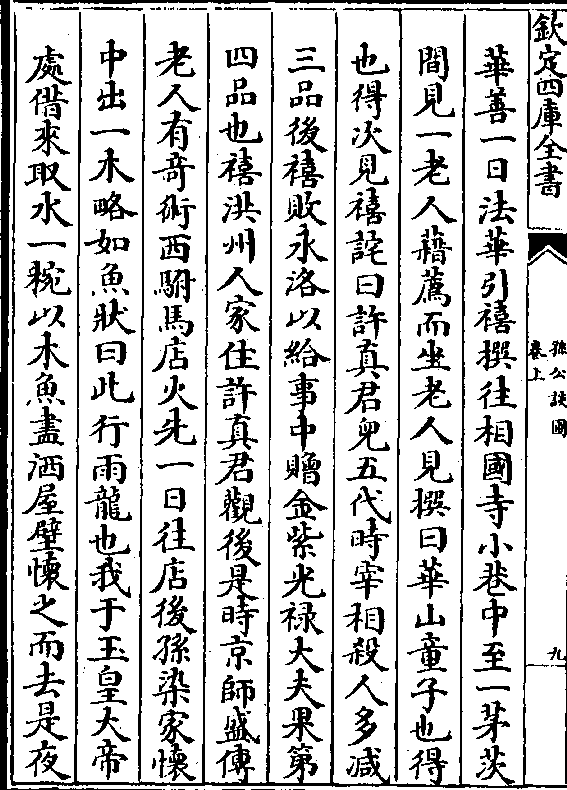 欽定四庫全書
孫公談圃
卷上
九
華善一日法華引禧撰往相國寺小巷中至一茅茨
間見一老人藉薦而坐老人見撰曰華山童子也得
也得次見禧詫曰許真君兒五代時宰相殺人多減
三品後禧敗永洛以給事中贈金紫光祿大夫果第
四品也禧洪州人家住許真君觀後是時京師盛傳
老人有奇術西駙馬店火先一日往店後孫染家懷
中出一木略如魚狀曰此行雨龍也我于玉皇大帝
處借來取水一椀以木魚盡洒屋壁懷之而去是夜